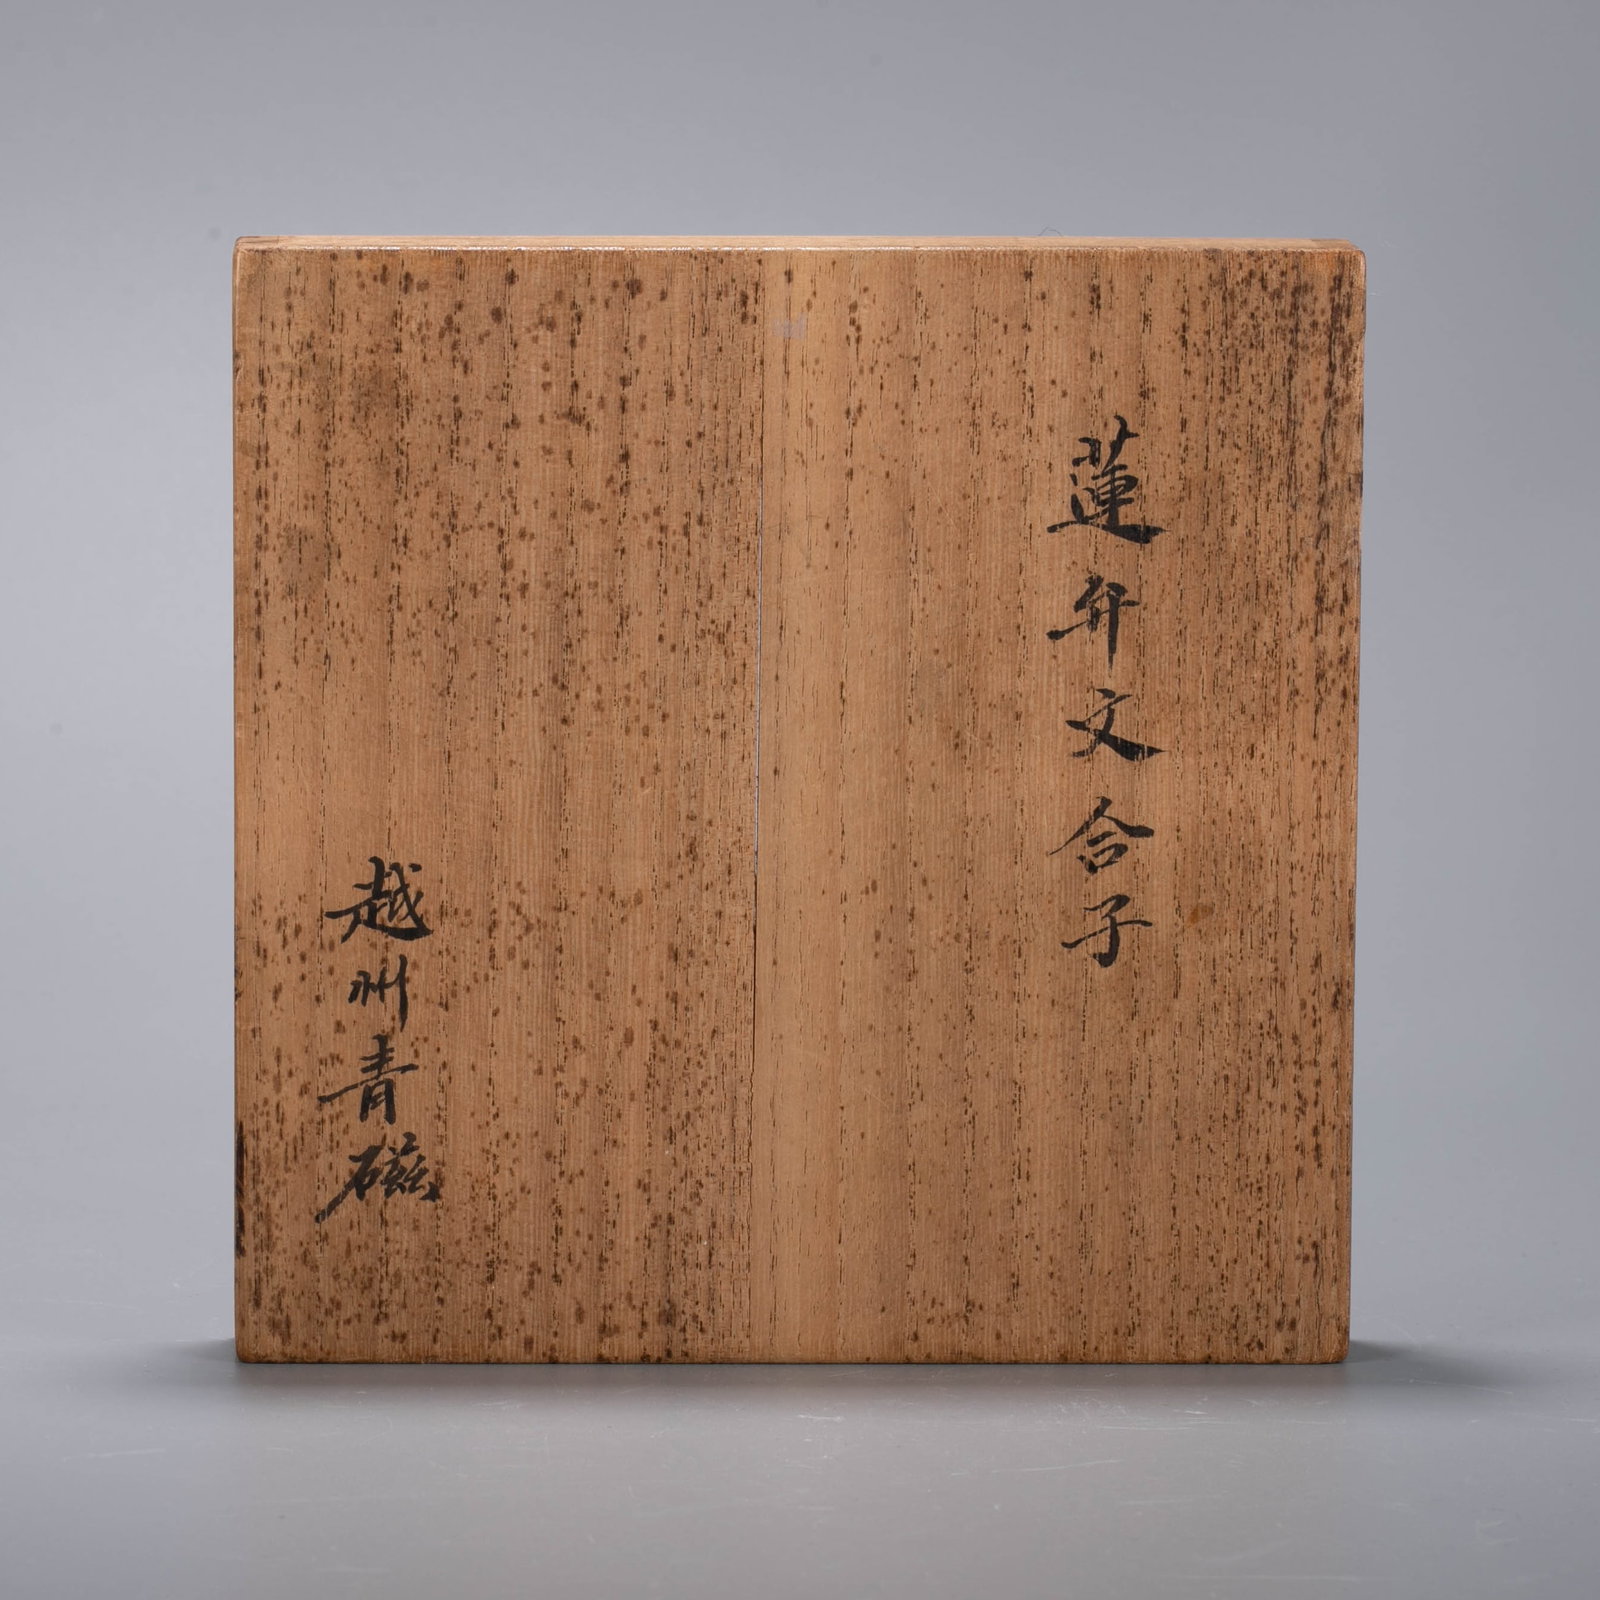 蓮弁文合子
越州青磁